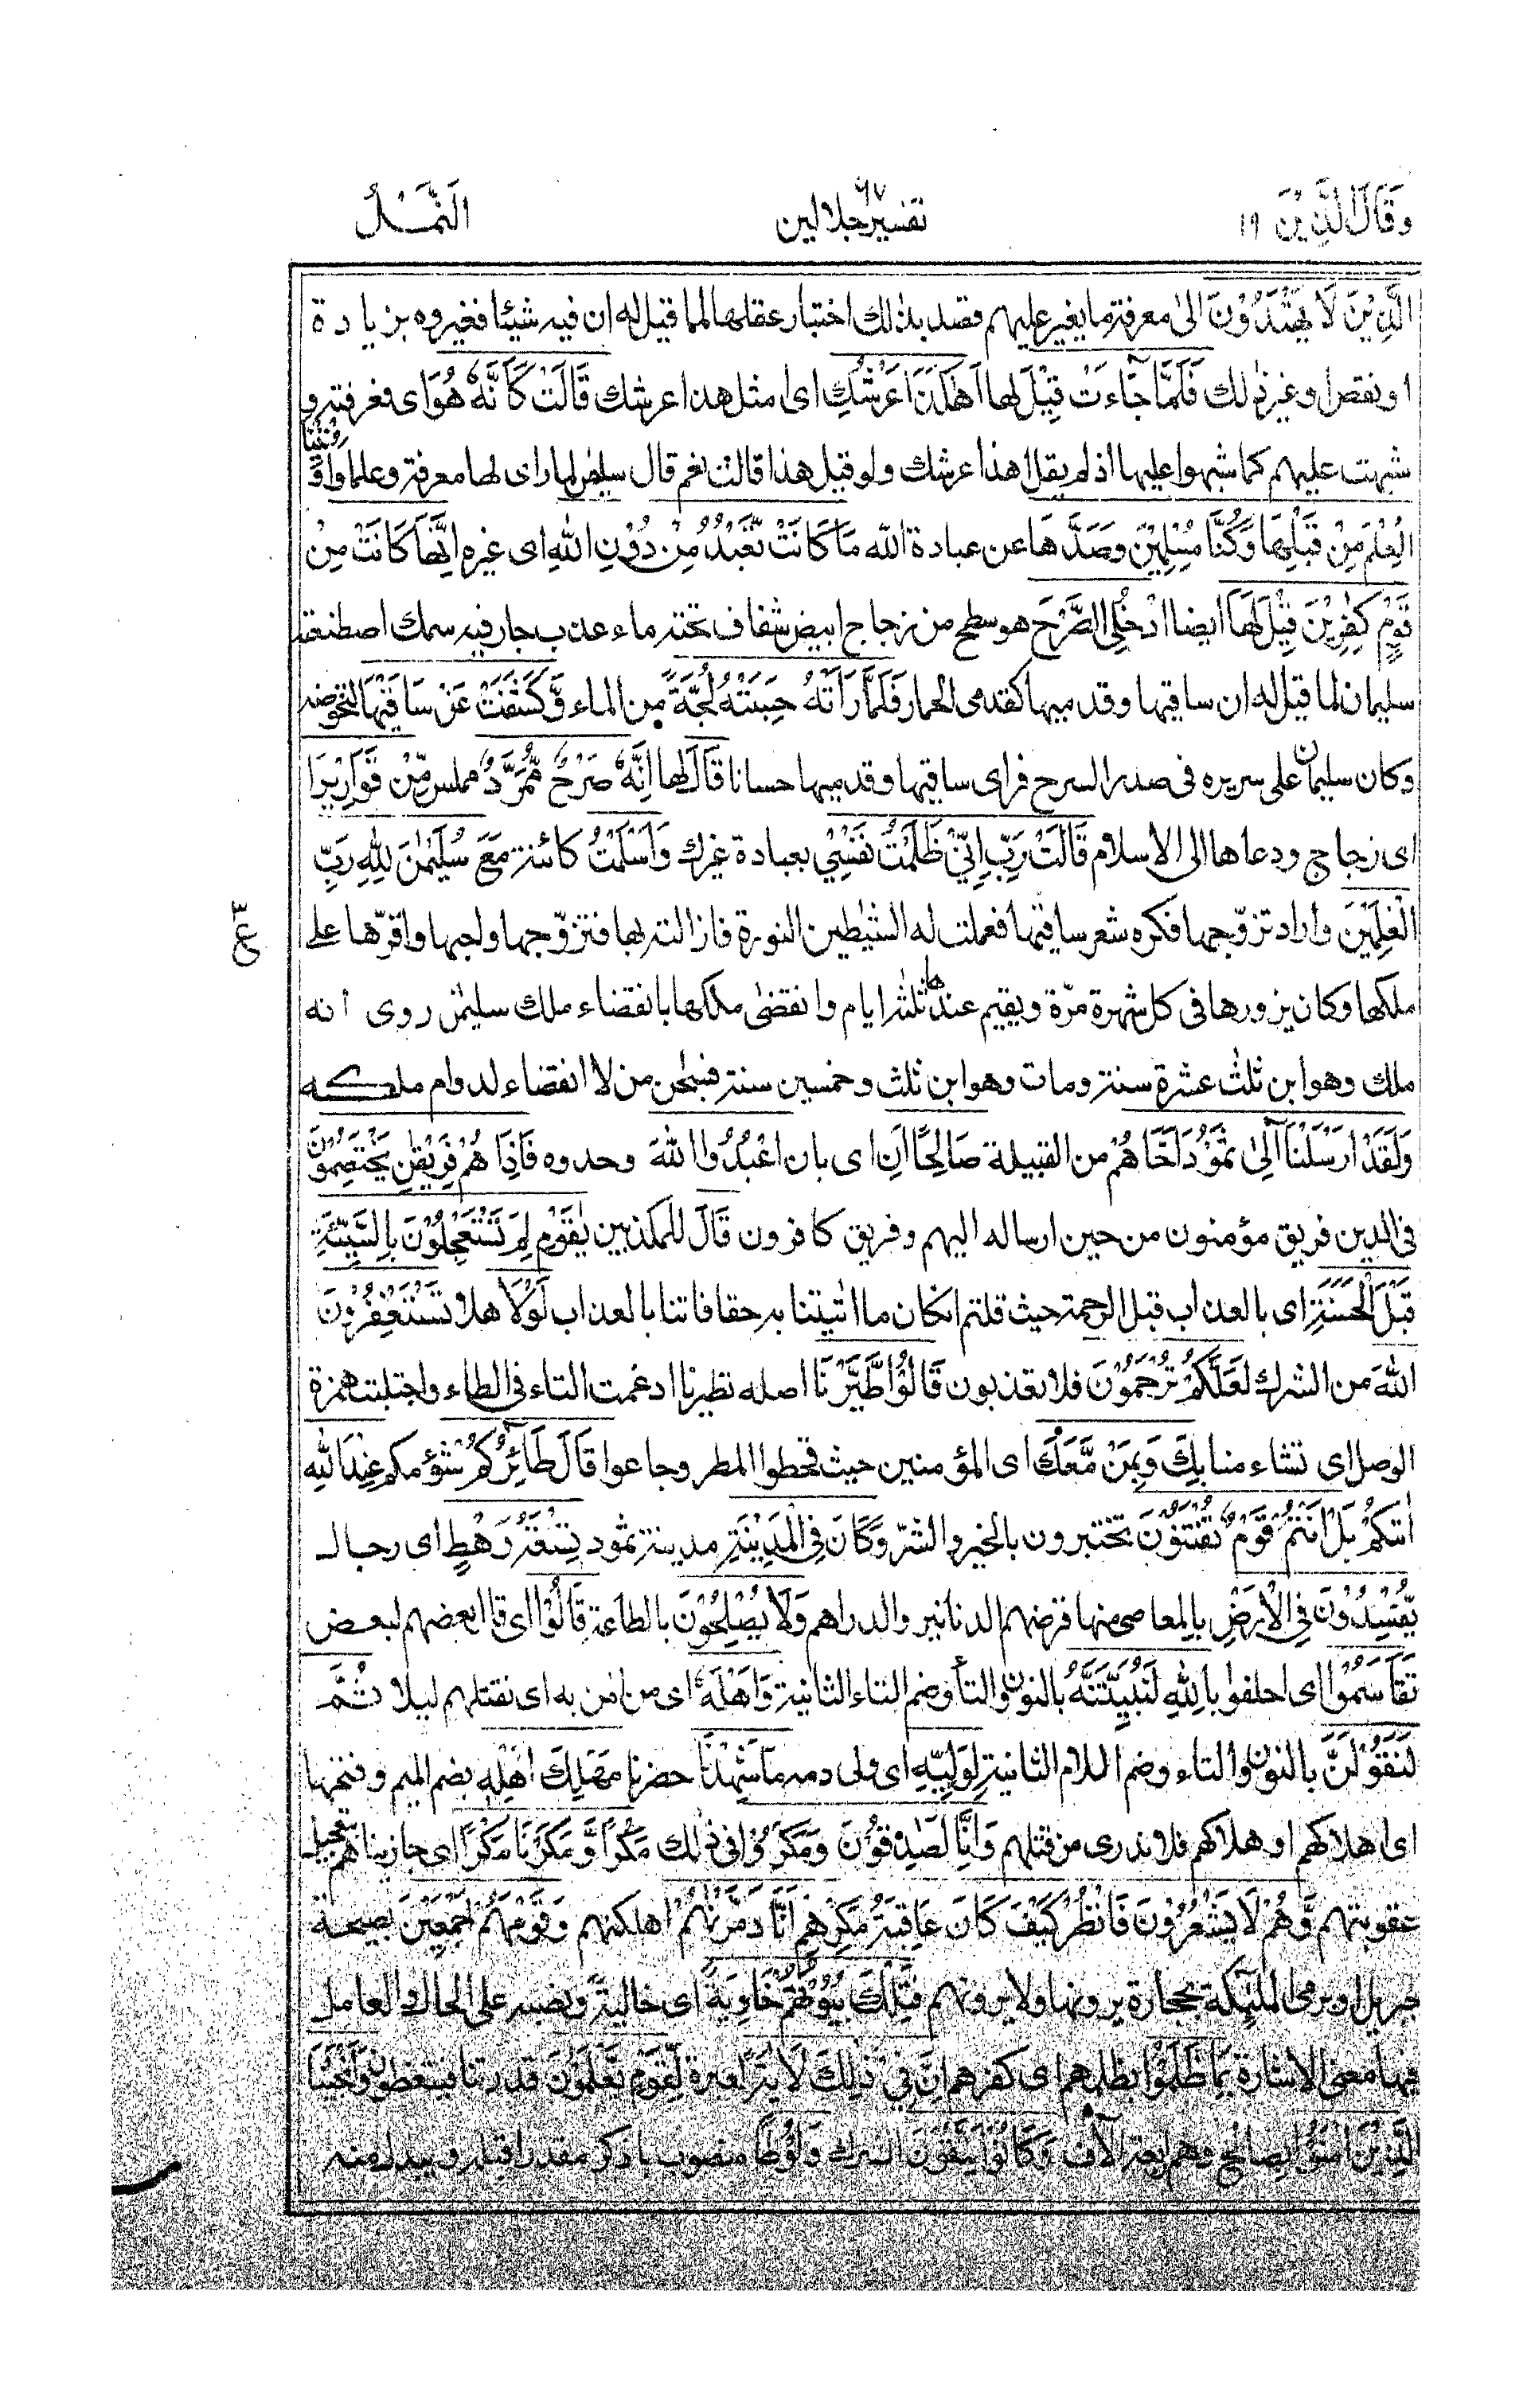 وَقَالَ الَّذِيْنَ ١٩
٦٧
تفسير جلالين
اَلنَّمْــلُ
الَّذِيْنَ لَا يَهْتَدُوْنَ الى معرفة ما يغير عليهم قصد بذلك اختبار عقلها لما قيل له ان فيه شيئا فغيروه بزيادة
او نقص او غير ذلك فَلَمَّا جَآءَتْ قِيْلَ لها اَهٰكَذَا عَرْشُكِ اى امثل هذا عرشك قَالَتْ كَاَنَّهٗ هُوَ اى فعرفته و
شبهت عليهم كما شبهوا عليها اذ لم يقل اهذا عرشك ولو قيل هذا قالت نعم قال سليمٰن لما راى لها معرفة وعلما وَاُوْتِيْنَا
الْعِلْمَ مِنْ قَبْلِهَا وَكُنَّا مُسْلِمِيْنَ وَصَدَّهَا عن عبادة الله مَا كَانَتْ تَّعْبُدُ مِنْ دُوْنِ اللهِ اى غيره اِنَّهَا كَانَتْ مِنْ
قَوْمٍ كٰفِرِيْنَ قِيْلَ لَهَا ايضا ادْخُلِى الصَّرْحَ هو سطح من زجاج ابيض شفاف تحته ماء عذب جار فيه سمك اصطنعه
سليمان لما قيل له ان ساقيها وقدميها كقدمى الحمار فَلَمَّا رَاَتْهُ حَسِبَتْهُ لُجَّةً من الماء وَّكَشَفَتْ عَنْ سَاقَيْهَا لتخوضه
وكان سليمان على سريره فى صدر السرح فراى ساقيها وقدميها حسانا قَالَ لها اِنَّهٗ صَرْحٌ مُّمَرَّدٌ مملس مِّنْ قَوَارِيْرَا
اى زجاج ودعاها الى الاسلام قَالَتْ رَبِّ اِنِّىْ ظَلَمْتُ نَفْسِىْ بعبادة غيرك وَاَسْلَمْتُ كائنة مَعَ سُلَيْمٰنَ لِلّٰهِ رَبِّ
الْعٰلَمِيْنَ واراد تزوّجها فكره شعر ساقيها فعملت له الشيٰطين النورة فازالته بها فتزوّجها واحبها واقرّها على
ملكها وكان يزورها فى كل شهر مرّة ويقيم عندها ثلثة ايام وانقضى ملكها بانقضاء ملك سليمٰن روى انه
ملك وهو ابن ثلث عشرة سنة ومات وهو ابن ثلث وخمسين سنة فسبحٰن من لا انقضاء لدوام ملكه
وَلَقَدْ اَرْسَلْنَآ اِلٰى ثَمُوْدَ اَخَاهُمْ من القبيلة صَالِحًا اَنِ اى بان اعْبُدُوا اللهَ وحدوه فَاِذَا هُمْ فَرِيْقٰنِ يَخْتَصِمُوْنَ
فى الدين فريق مؤمنون من حين ارساله اليهم وفريق كافرون قَالَ للمكذبين يٰقَوْمِ لِمَ تَسْتَعْجِلُوْنَ بِالسَّيِّئَةِ
قَبْلَ الْحَسَنَةِ اى بالعذاب قبل الرحمة حيث قلتم ان كان ما اتيتنا به حقا فاتنا بالعذاب لَوْلَا هلا تَسْتَغْفِرُوْنَ
اللهَ من الشرك لَعَلَّكُمْ تُرْحَمُوْنَ فلا تعذبون قَالُوا اطَّيَّرْنَا اصله تطيرنا ادغمت التاء فى الطاء واجتلبت همزة
الوصل اى تشاء منا بِكَ وَبِمَنْ مَّعَكَ اى المؤمنين حيث قحطوا المطر وجاعوا قَالَ طَآئِرُكُمْ شؤمكم عِنْدَ اللهِ
اتٰكم بَلْ اَنْتُمْ قَوْمٌ تُفْتَنُوْنَ تختبرون بالخير والشرّ وَكَانَ فِى الْمَدِيْنَةِ مدينة ثمود تِسْعَةُ رَهْطٍ اى رجال
يُّفْسِدُوْنَ فِى الْاَرْضِ بالمعاصى منها قرضهم الدنانير والدراهم وَلَا يُصْلِحُوْنَ بالطاعة قَالُوْا اى قال بعضهم لبعض
تَقَاسَمُوْا اى احلفوا بِاللهِ لَنُبَيِّتَنَّهٗ بالنون والتاء وضم التاء الثانية وَاَهْلَهٗ اى من اٰمن به اى نقتلهم ليلا ثُمَّ
لَنَقُوْلَنَّ بالنون والتاء وضم اللام الثانية لِوَلِيِّهٖ اى ولى دمه مَا شَهِدْنَا حضرنا مَهْلِكَ اَهْلِهٖ بضم الميم وفتحها
اى اهلاكهم او هلاكهم فلا ندرى من قتلهم وَاِنَّا لَصٰدِقُوْنَ وَمَكَرُوْا فى ذلك مَكْرًا وَّمَكَرْنَا مَكْرًا اى جازيناهم بتعجيل
عقوبتهم وَّهُمْ لَا يَشْعُرُوْنَ فَانْظُرْ كَيْفَ كَانَ عَاقِبَةُ مَكْرِهِمْ اَنَّا دَمَّرْنٰهُمْ اهلكنهم وَقَوْمَهُمْ اَجْمَعِيْنَ بصيحة
جبريل او برمى الملٰٓئكة بحجارة يرونها ولا يرونهم فَتِلْكَ بُيُوْتُهُمْ خَاوِيَةً اى خالية ونصبه على الحال والعامل
فيها معنى الاشارة بِمَا ظَلَمُوْا بظلمهم اى كفرهم اِنَّ فِىْ ذٰلِكَ لَاٰيَةً لعبرة لِّقَوْمٍ يَّعْلَمُوْنَ قدرتنا فيتعظون وَاَنْجَيْنَا
الَّذِيْنَ اٰمَنُوْا بصالح وهم اربعة الاف وَكَانُوْا يَتَّقُوْنَ الشرك وَلُوْطًا منصوب باذكر مقدرا قبله ويبدل منه
ع ٣